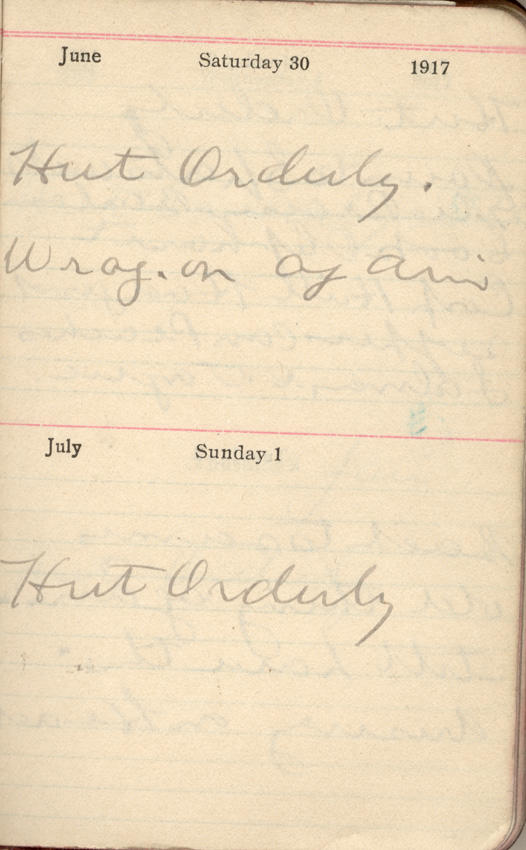 June Saturday 30 1917
Hut Orderly.
Wrag. on again
July Sunday 1
Hut Orderly